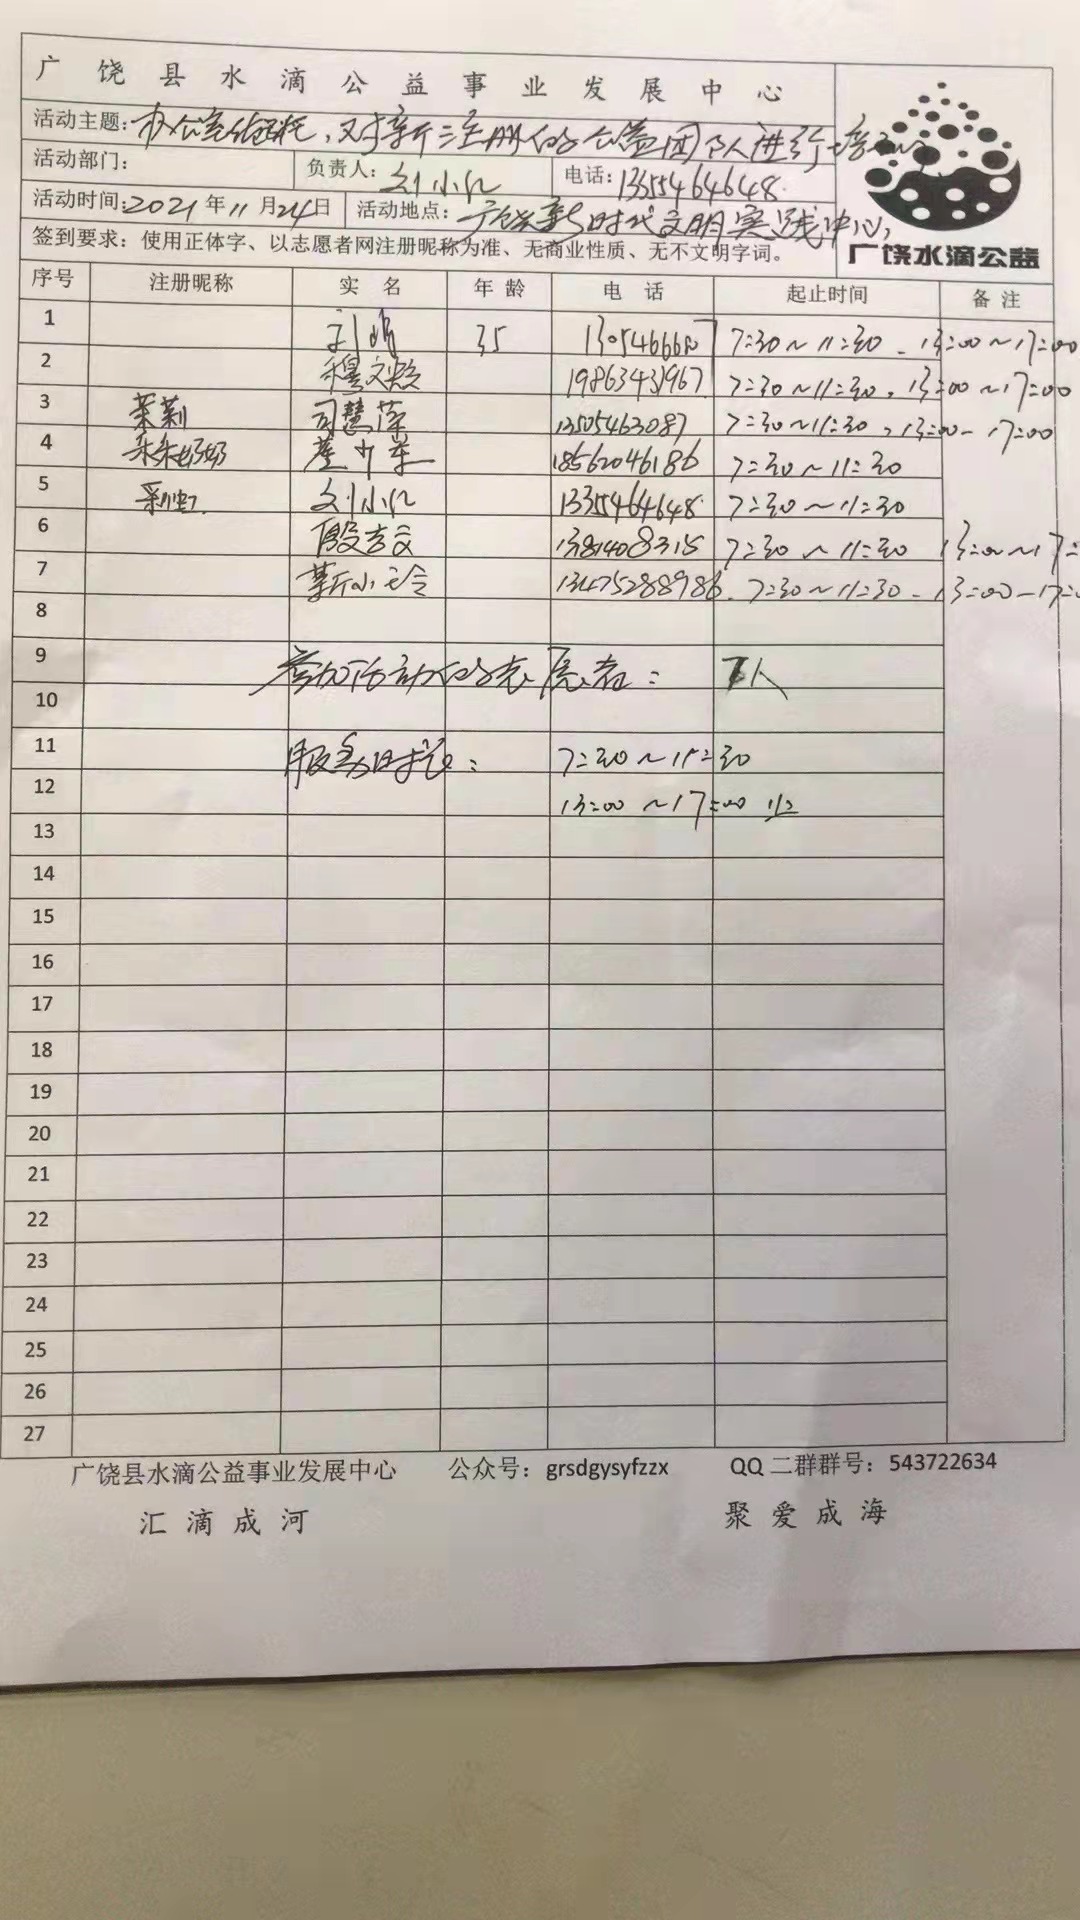 广饶县水滴公益事业发展中心
活动主题：办公室值班，对新注册的公益团队进行培训
活动部门： 负责人：刘小亿 电话：13355464648
活动时间：2021年11月24日 活动地点：广饶县新时代文明实践中心
签到要求：使用正体字、以志愿者网注册昵称为准、无商业性质、无不文明字词。
广饶水滴公益
序号 注册昵称 实名 年龄 电话 起止时间 备注
1 35 7:30～11:30 13:00～17:00
2 19863431967 7:30～11:30，13:00～17:00
3 茉莉 司慧萍 13505463087 7:30～11:30，13:00-17:00
4 朵朵奶奶 18562046186 7:30～11:30
5 彩虹 刘小亿 13355464648 7:30～11:30
6 1381408315 7:30～11:30 13:00～17:
7 靳小玲 13475288986 7:30～11:30-13:00-17:0
8
9 参加活动的志愿者： 7人
10
11 服务时长： 7:30～11:30
12 13:00～17:00止
13
14
15
16
17
18
19
20
21
22
23
24
25
26
27
广饶县水滴公益事业发展中心 公众号：grsdgysyfzzx QQ二群群号：543722634
汇滴成河 聚爱成海